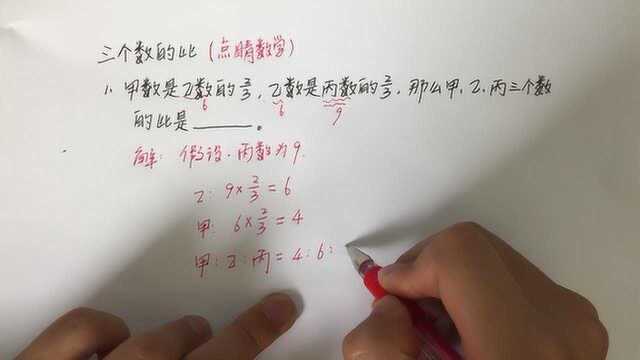 三个数的比(点睛数学)
1. 甲数是乙数的2/3,乙数是丙数的2/3,那么甲、乙、丙三个数
6 6 9
的比是______。
解:假设.丙数为9.
乙:9×2/3=6
甲:6×2/3=4
甲:乙:丙=4:6: